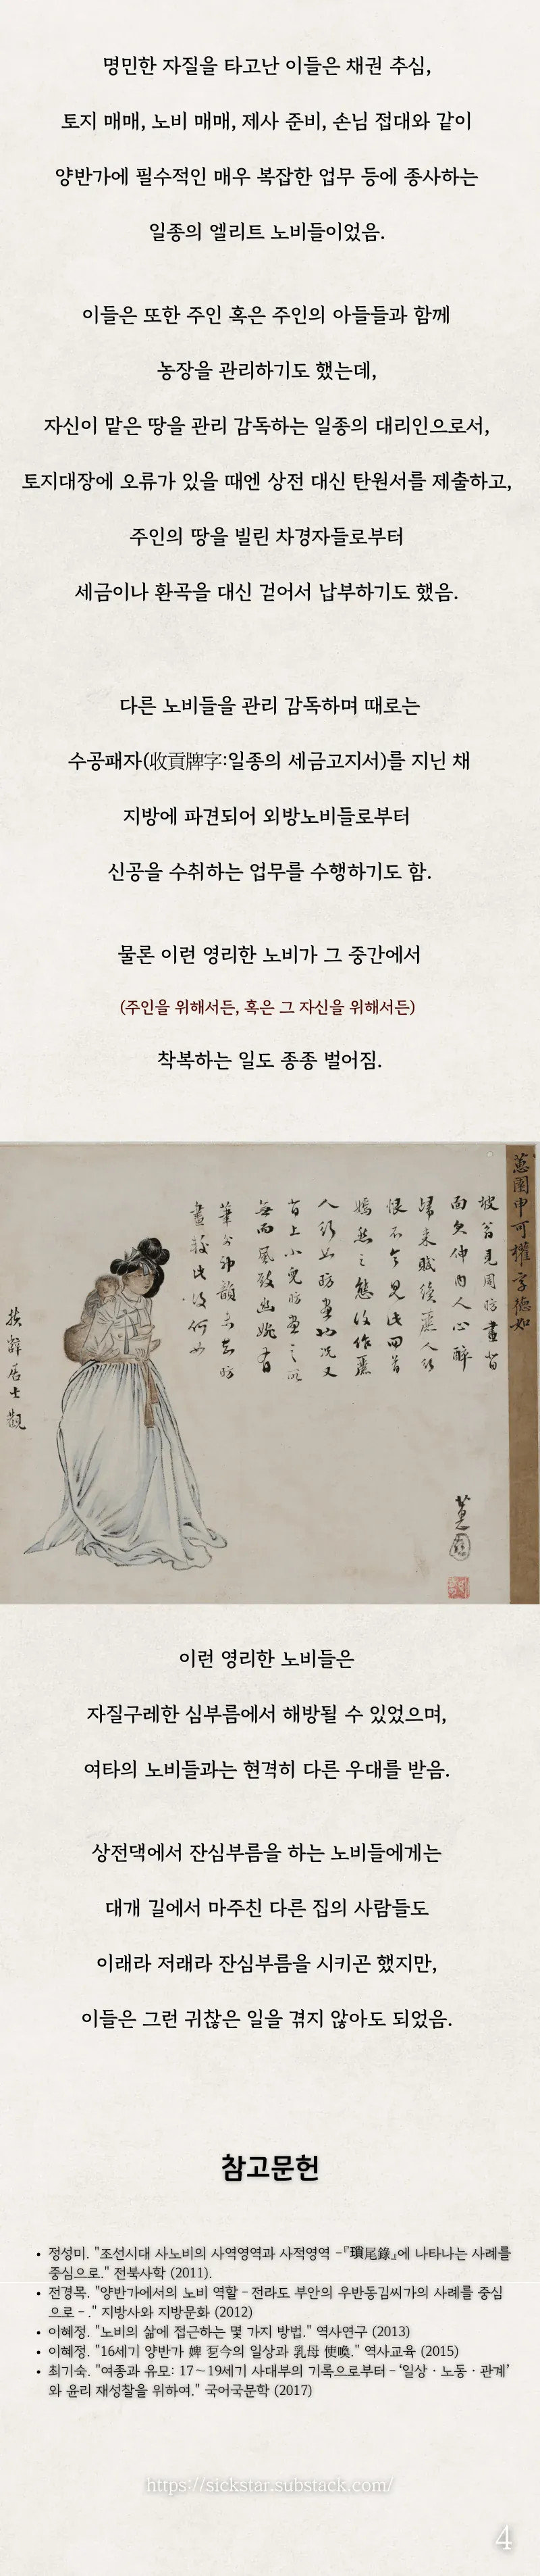 명민한 자질을 타고난 이들은 채권 추심,
토지 매매, 노비 매매, 제사 준비, 손님 접대와 같이
양반가에 필수적인 매우 복잡한 업무 등에 종사하는
일종의 엘리트 노비들이었음.
이들은 또한 주인 혹은 주인의 아들들과 함께
농장을 관리하기도 했는데,
자신이 맡은 땅을 관리 감독하는 일종의 대리인으로서,
토지대장에 오류가 있을 때엔 상전 대신 탄원서를 제출하고,
주인의 땅을 빌린 차경자들로부터
세금이나 환곡을 대신 걷어서 납부하기도 했음.
다른 노비들을 관리 감독하며 때로는
수공패자(收貢牌字:일종의 세금고지서)를 지닌 채
지방에 파견되어 외방노비들로부터
신공을 수취하는 업무를 수행하기도 함.
물론 이런 영리한 노비가 그 중간에서
(주인을 위해서든, 혹은 그 자신을 위해서든)
착복하는 일도 종종 벌어짐.
蕙園申可權字德如
坡翁見周昉畫背
面欠伸內人心醉
歸來賦續麗人行
恨不令見此回首
嫣然之態復作麗
人行如昉畫也況又
背上小兒昉畫之所
無而風致幽婉者
筆公神韻未知昉
畫較此復何如
扶辭居士觀
蕙園
이런 영리한 노비들은
자질구레한 심부름에서 해방될 수 있었으며,
여타의 노비들과는 현격히 다른 우대를 받음.
상전댁에서 잔심부름을 하는 노비들에게는
대개 길에서 마주친 다른 집의 사람들도
이래라 저래라 잔심부름을 시키곤 했지만,
이들은 그런 귀찮은 일을 겪지 않아도 되었음.
참고문헌
• 정성미. "조선시대 사노비의 사역영역과 사적영역 -『瑣尾錄』에 나타나는 사례를
중심으로." 전북사학 (2011).
• 전경목. "양반가에서의 노비 역할 - 전라도 부안의 우반동김씨가의 사례를 중심
으로 - ." 지방사와 지방문화 (2012)
• 이혜정. "노비의 삶에 접근하는 몇 가지 방법." 역사연구 (2013)
• 이혜정. "16세기 양반가 婢 㐎今의 일상과 乳母 使喚." 역사교육 (2015)
• 최기숙. "여종과 유모: 17～19세기 사대부의 기록으로부터 - '일상 · 노동 · 관계'
와 윤리 재성찰을 위하여." 국어국문학 (2017)
https://sickstar.substack.com/
4